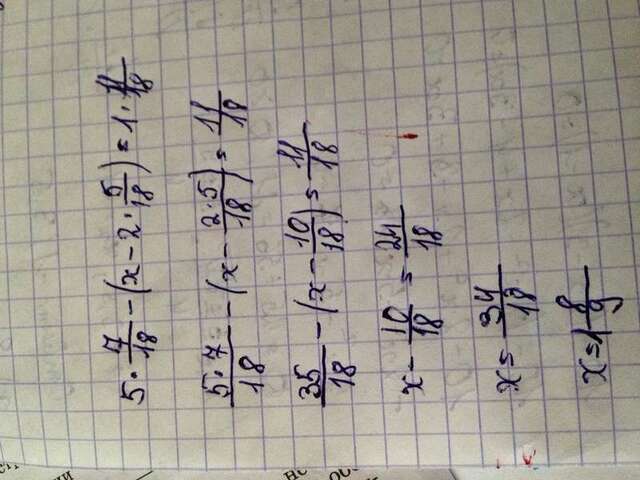 5 · 7/18 - (x - 2 · 5/18) = 1 · 11/18
5·7/18 - (x - 2·5/18) = 11/18
35/18 - (x - 10/18) = 11/18
x - 10/18 = 24/18
x = 34/18
x = 1 8/9